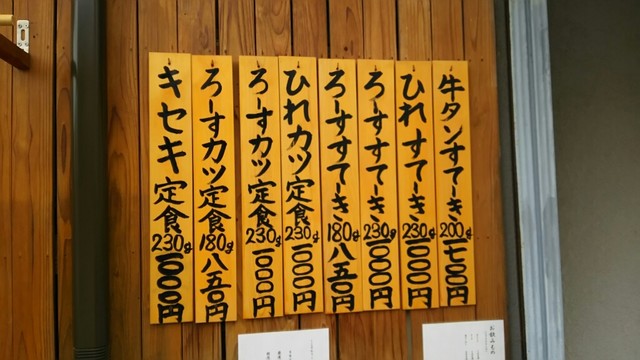 牛タンすてーき 200g 一七〇〇円
ひれすてーき 230g 一〇〇〇円
ろーすすてーき 230g 一〇〇〇円
ろーすすてーき 180g 八五〇円
ひれカツ定食 230g 一〇〇〇円
ろーすカツ定食 230g 一〇〇〇円
ろーすカツ定食 180g 八五〇円
キセキ定食 230g 一〇〇〇円